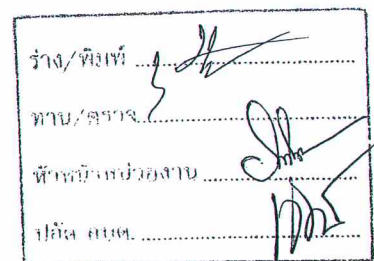 ร่าง/พิมพ์ ........................
ทาน/ตรวจ........................
หัวหน้าหน่วยงาน ........................
ปลัด อบต. ........................